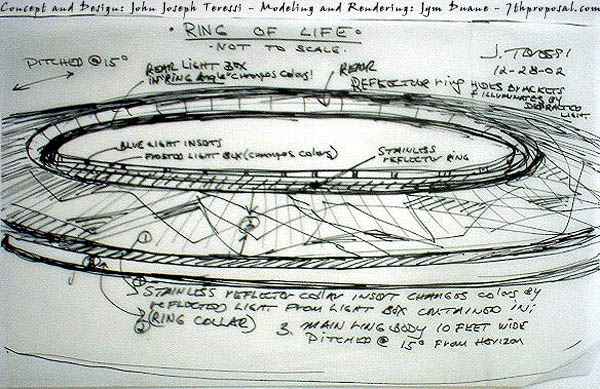 Concept and Design: John Joseph Teressi - Modeling and Rendering: Jym Duane - 7thproposal.com
• RING OF LIFE •
• NOT TO SCALE •
J. Teressi
12-28-02
PITCHED @ 15°
REAR LIGHT BOX
IN RING Angle changes colors!
REAR
REFLECTOR ring HIDES BRACKETS
& ILLUMINATES BY
LIGHT
BLUE LIGHT INSETS
FROSTED LIGHT BOX (changes colors)
STAINLESS
REFLECTOR RING
2
1
1 STAINLESS REFLECTOR COLLAR INSERT CHANGES colors By
REFLECTED LIGHT FROM LIGHT BOX CONTAINED IN:
2 (RING COLLAR)
3. MAIN RING BODY 10 FEET WIDE
PITCHED @ 15° FROM HORIZON